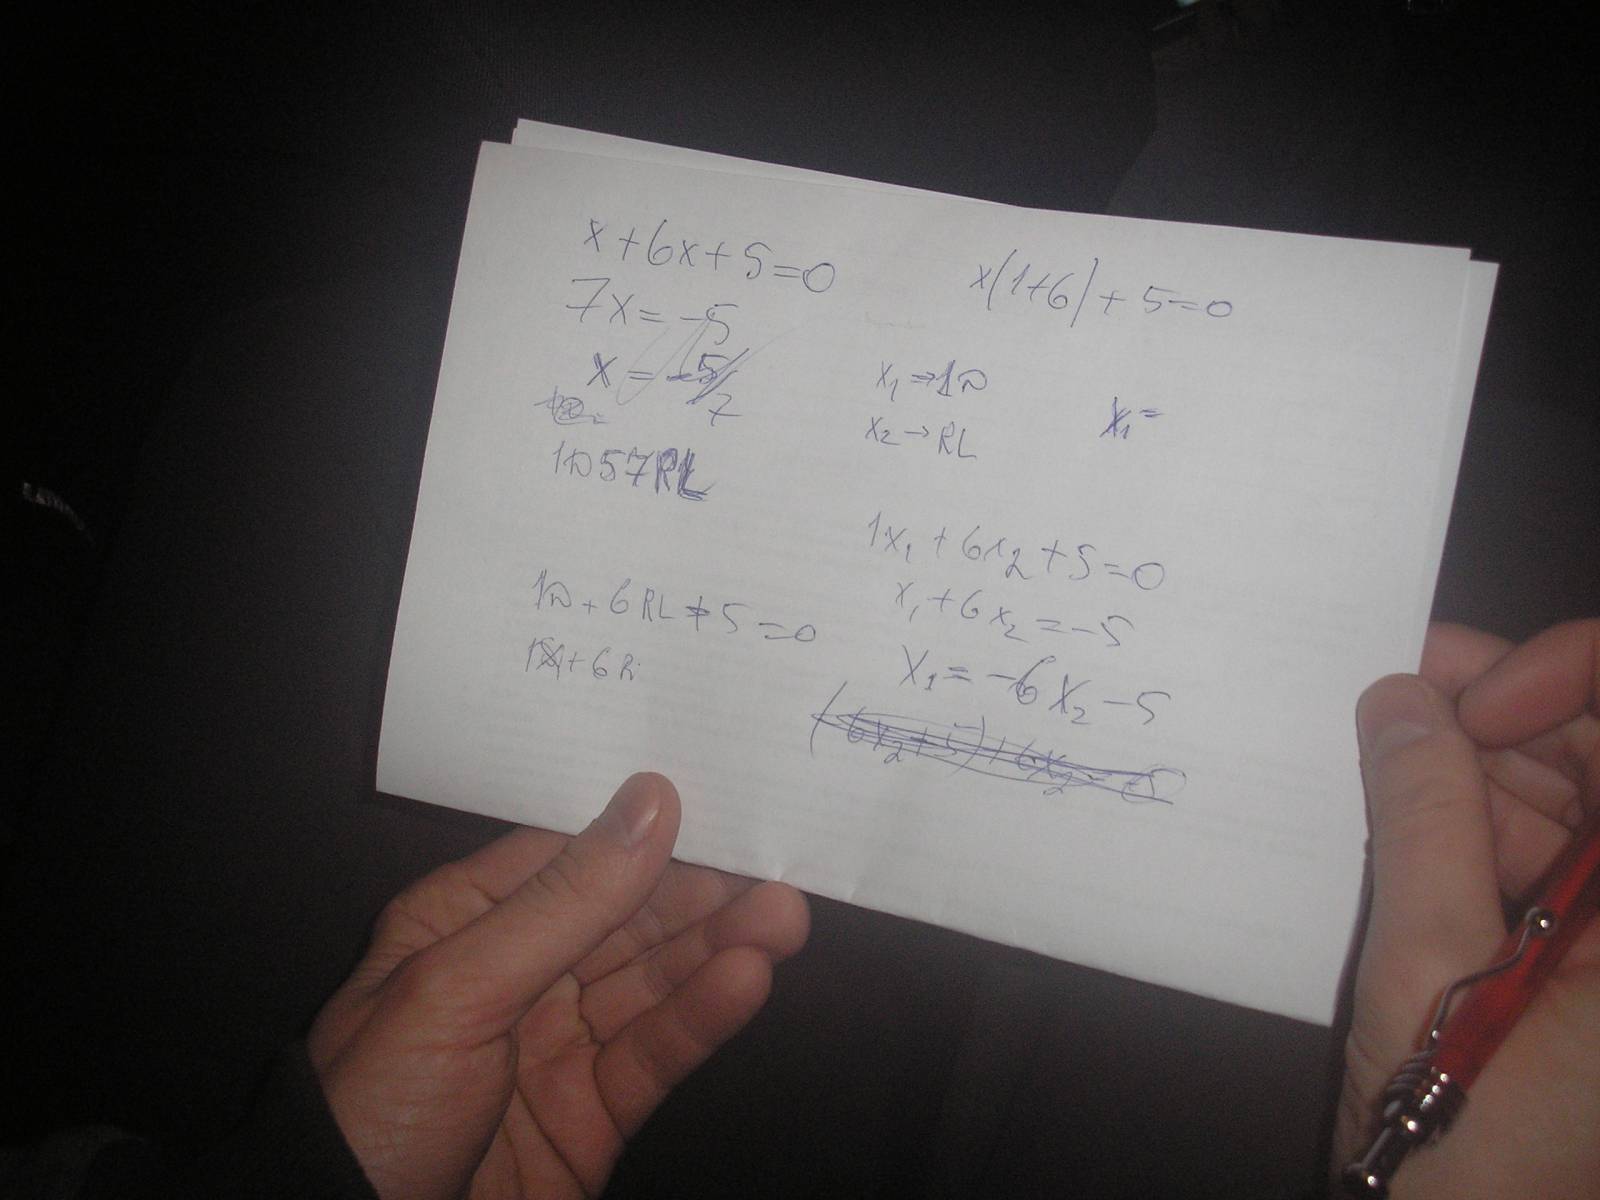 x+6x+5=0
7x=-5
x=-5/7
57RL
+6RL+5=0
+6R
x(1+6)+5=0
x₁
x₂→RL
x₁=
1x₁+6x₂+5=0
x₁+6x₂=-5
x₁=-6x₂-5